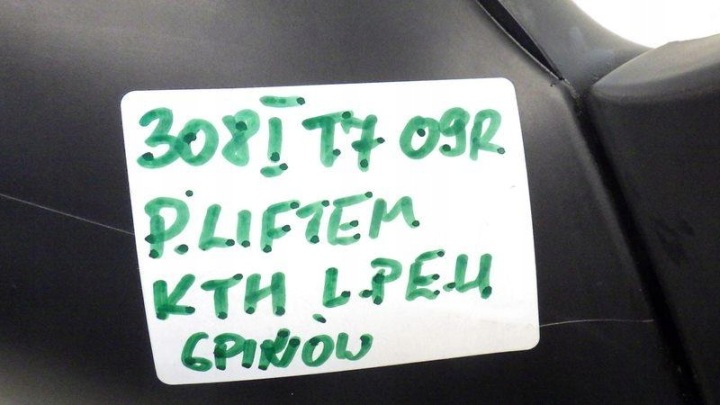 308I T7 09R
P.LIFTEM
KTH L.PEŁŁ
6PINÓW